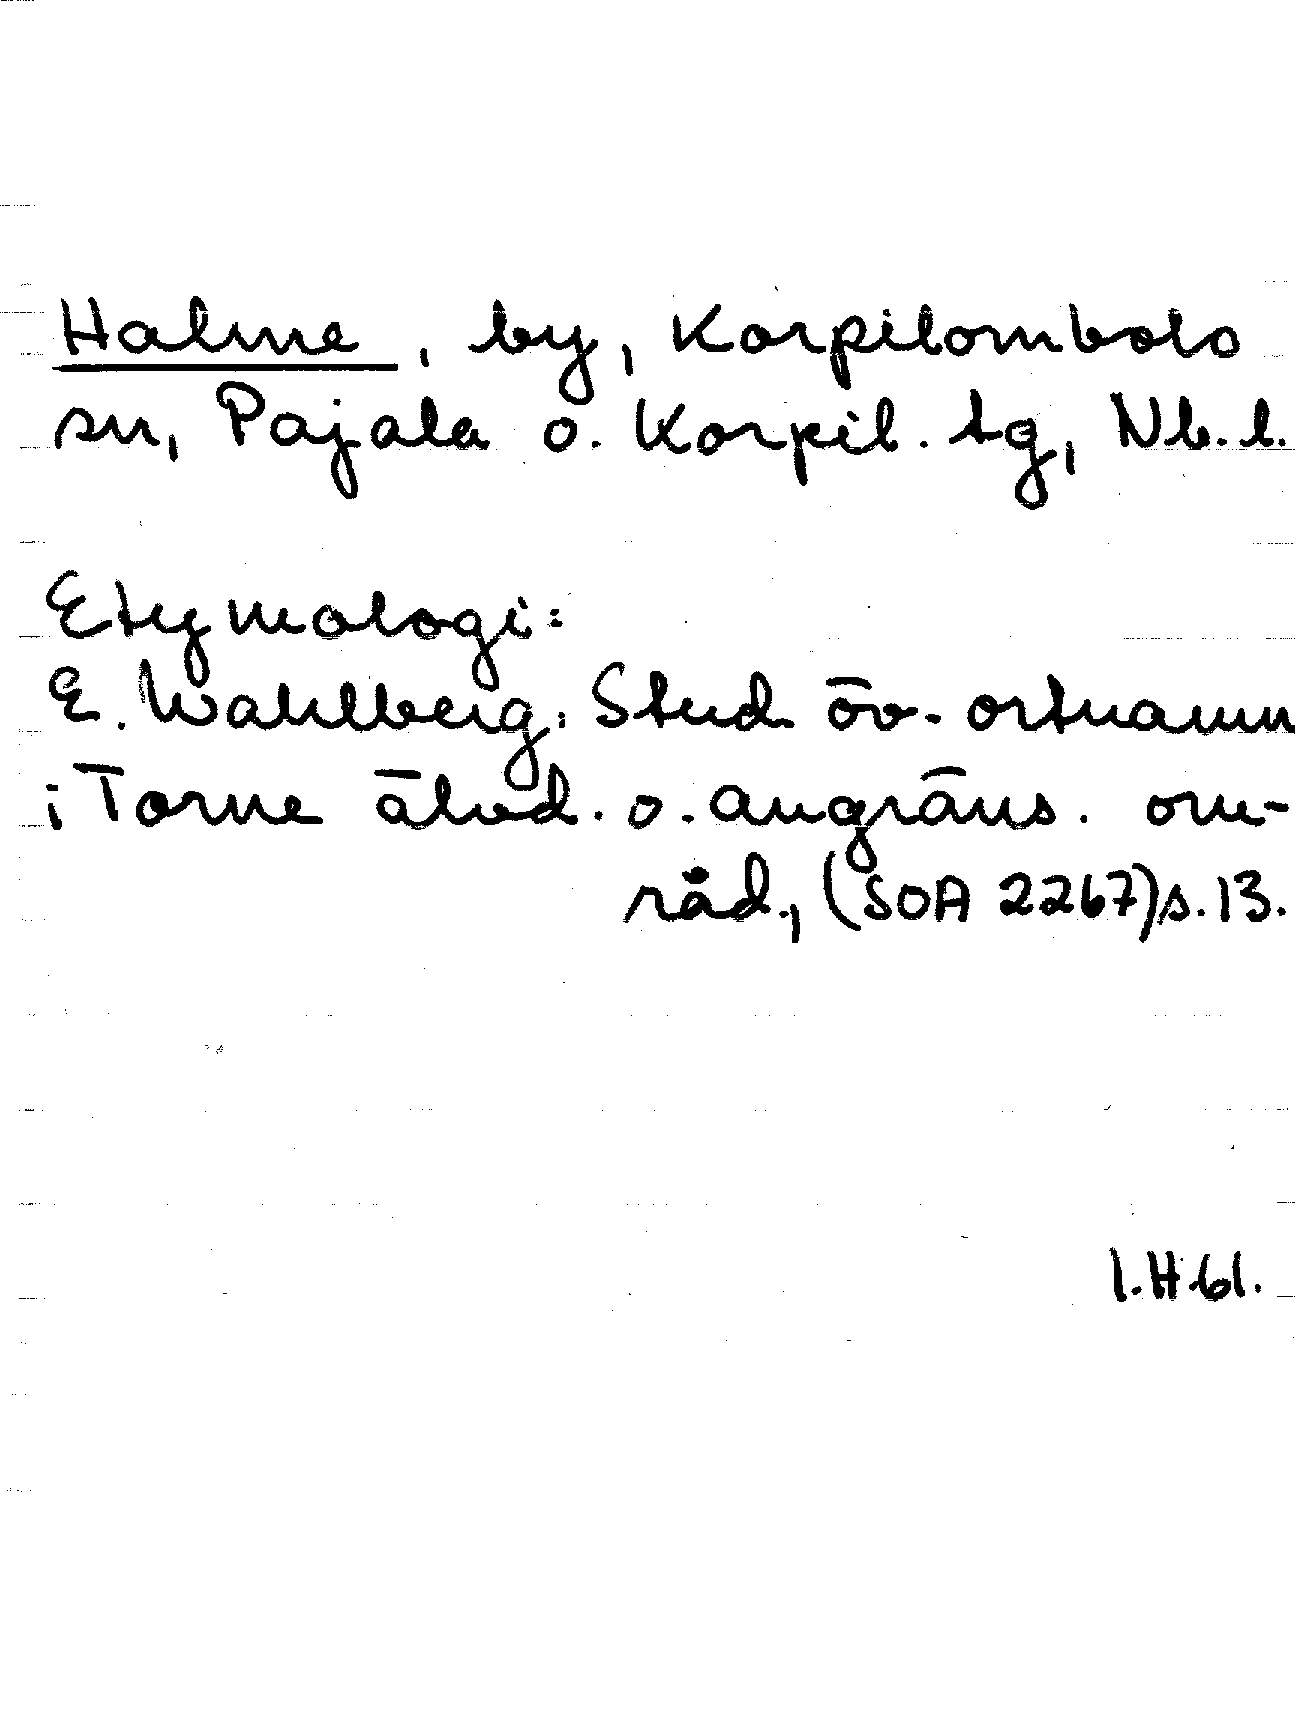 Halme, by, Korpilombolo
sn, Pajala o. Korpil. tg, Nb.l.
Etymologi:
E. Wahlberg: Stud. öv. ortnamn
i Torne älvd. o. angräns. om-
råd., (SOA 2267) s. 13.
I.H.61.